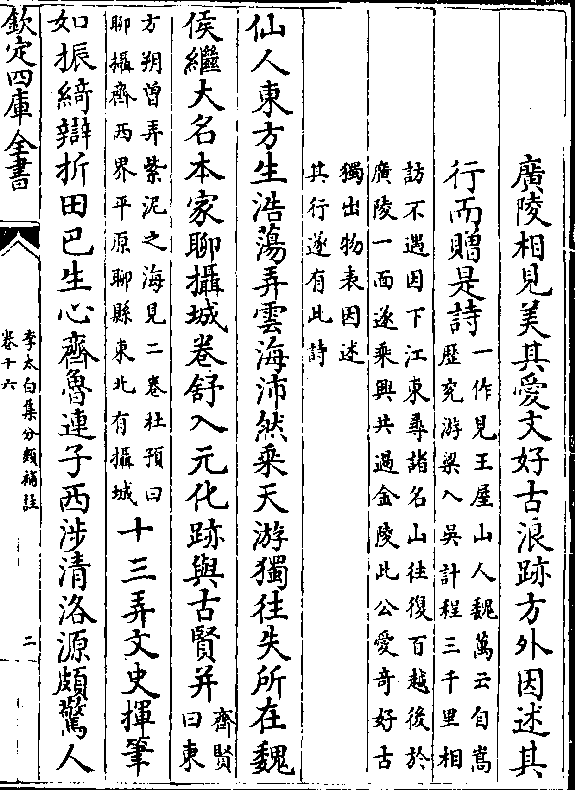 廣陵相見美其愛文好古浪跡方外因述其
行而贈是詩
一作見王屋山人魏萬云自嵩
歴兖游梁入吳計程三千里相
訪不遇因下江東尋諸名山往復百越後於
廣陵一面遂乘興共過金陵此公愛奇好古
獨出物表因述
其行遂有此詩
仙人東方生浩蕩弄雲海沛然乘天游獨往失所在魏
侯繼大名本家聊攝城卷舒入元化跡與古賢并
齊賢
曰東
方朔曾弄紫泥之海見二卷杜預曰
聊攝齊西界平原聊縣東北有攝城
十三弄文史揮筆
如振綺辯折田巴生心齊魯連子西涉清洛源頗驚人
欽定四庫全書
李太白集分類補註
卷十六
二